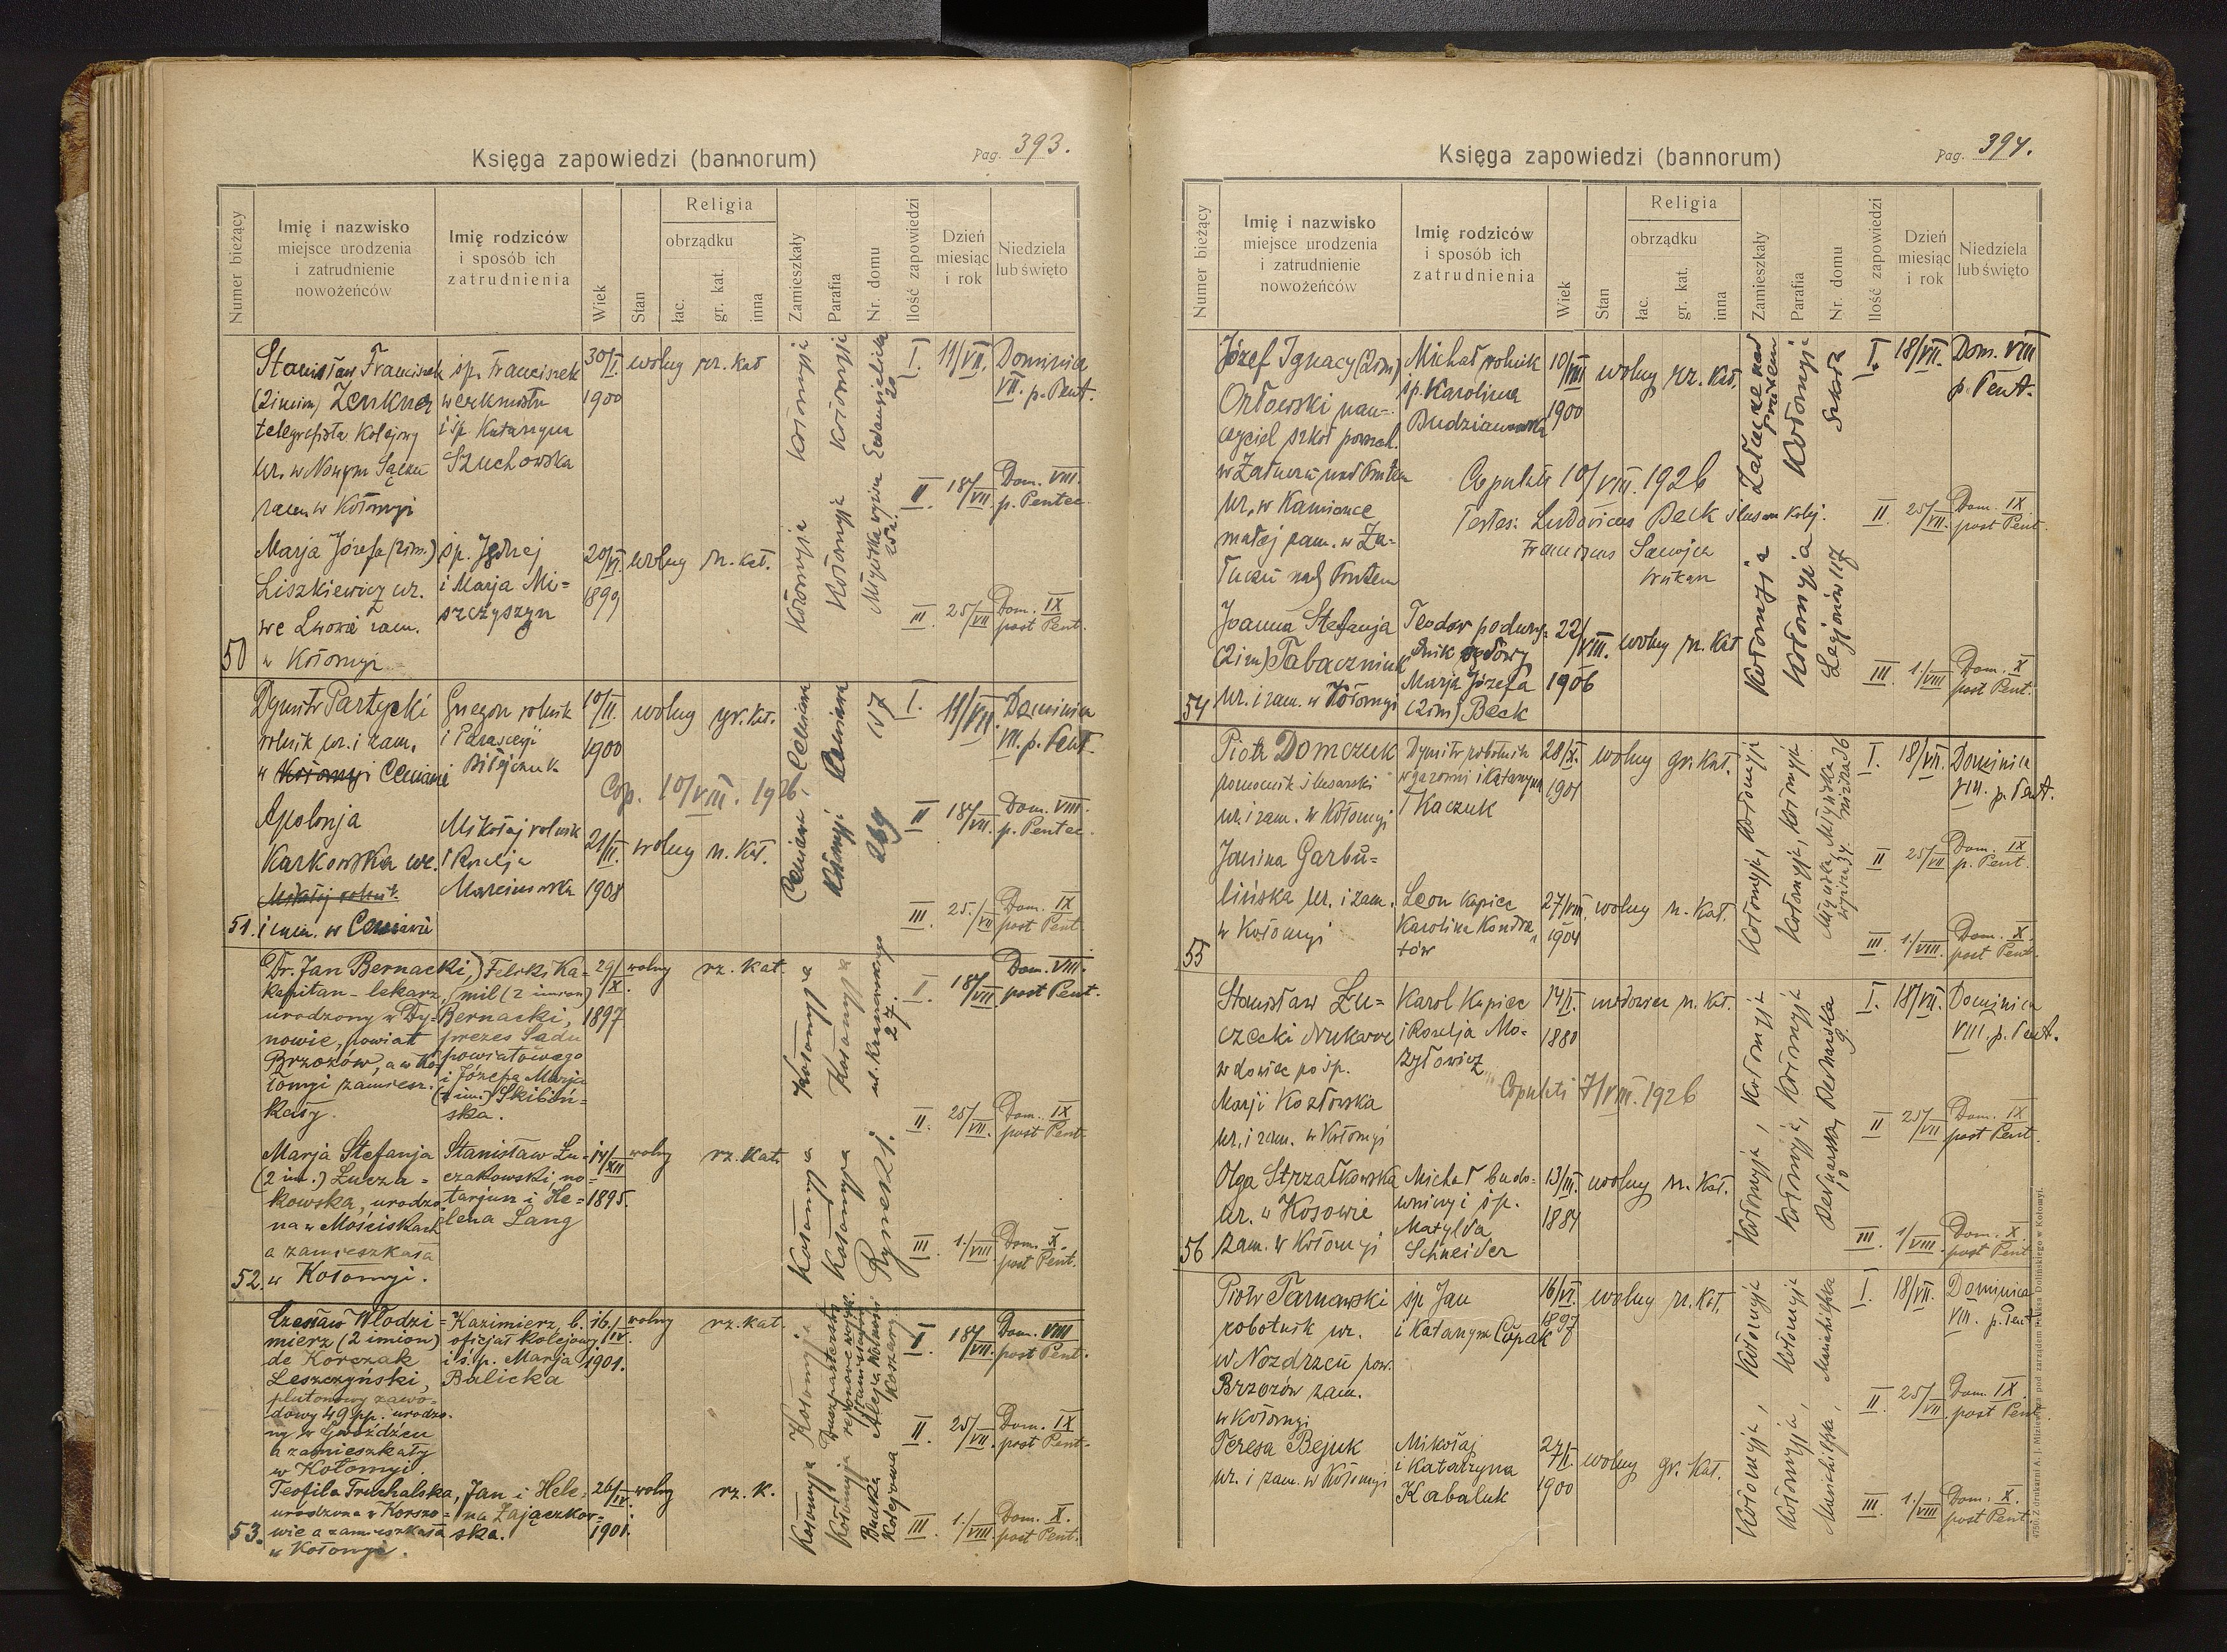 Księga zapowiedzi (bannorum)
Pag. 393.
Numer bieżący
Imię i nazwisko
miejsce urodzenia
i zatrudnienie
nowożeńców
Imię rodziców
i sposób ich
zatrudnienia
Wiek
Stan
Religia
obrządku
łac.
gr. kat.
inna
Zamieszkały
Parafia
Nr. domu
Ilość zapowiedzi
Dzień
miesiąc
i rok
Niedziela
lub święto
50
Stanisław Franciszek
(2 imion) Zenkner
telegrafista kolejowy
ur. w Nowym Sączu
zam w Kołomyi
śp. Franciszek
werkmistrz
i śp Katarzyna
Szuchowska
30/I.
1900
wolny rz. kat
Kołomyja
Kołomyja
Ewangielicka
20
I. 11/VII. Dominica
VII. p. Pent.
II 18/VII. Dom. VIII.
p. Pentec.
Marja Józefa (2 im.)
Liszkiewicz ur.
we Lwowie zam.
w Kołomyi
śp. Jędrzej
i Marja Mi=
szczyszyn
20/VI.
1899
wolny rz. kat.
Kołomyja
Kołomyja
Młyńska wyżna
III 25/VII Dom. IX
post Pent.
51.
Dymitr Partycki
rolnik ur. i zam.
w Kołomyi Ceniawie
Grzegorz rolnik
i Parascewji
10/II.
1900
wolny gr. kat.
Ceniawa
Ceniawa
157
I. 11/VII. Dominica
VII. p. Pent.
Cop. 10/VIII. 1926
Apolonja
Karkowska ur.
Mikołaj rolnik
i zam. w Ceniawie
Mikołaj rolnik
i Rozalja
21/II.
1908
wolny rz. kat.
Ceniawa
Kołomyja
269
II 18/VII. Dom. VIII.
p. Pentec.
III. 25./VII Dom. IX
post Pent.
52.
Dr. Jan Bernacki,
kapitan-lekarz,
urodzony w Dy=
nowie, powiat
Brzozów, a w Ko=
łomyi zamiesz=
kały.
Feliks Ka=
mil (2 imion)
Bernacki,
prezes Sądu
powiatowego
i Józefa Marja
(2 im.) Skibiń=
ska.
29/X.
1897
wolny rz. kat.
Kołomyja
Kołomyja
27.
I. 18/VII Dom. VIII.
post Pent.
II. 25/VII. Dom. IX
post Pent.
Marja Stefanja
(2 im.) Łucza=
kowska, urodzo=
na w Mościskach
a zamieszkała
w Kołomyi.
Stanisław Łu=
czakowski, no=
tarjusz i He=
lena Lang
14/XII
1895.
wolny rz. kat.
Kołomyja
Kołomyja
Rynek 21.
III 1./VIII Dom. X.
post Pent.
53.
Czesław Włodzi=
mierz (2 imion)
de Korczak
Leszczyński,
plutonowy zawo=
dowy 49 pp. urodzo=
ny w Gwoźdźcu
a zamieszkały
w Kołomyi.
Kazimierz, b.
oficjał kolejowy
i ś. p. Marja
Balicka
16./IV.
1901.
wolny rz. kat.
Kołomyja
Duszpasterstwo
rejonowe wojsk.
Stanisławów
Aleja Wolności
Koszary
I. 18/VII Dom. VIII
post Pent.
II. 25/VII. Dom. IX
post Pent.
Teofila Truchalska,
urodzona w Korszo=
wie a zamieszkała
w Kołomyi.
Jan i Hele=
na Zajączkow=
ska.
26/IV.
1901.
wolny rz. k.
Kołomyja
Kołomyja
Budka
Kolejowa
III 1./VIII. Dom. X.
post Pent.
Księga zapowiedzi (bannorum)
Pag. 394.
Numer bieżący
Imię i nazwisko
miejsce urodzenia
i zatrudnienie
nowożeńców
Imię rodziców
i sposób ich
zatrudnienia
Wiek
Stan
Religia
obrządku
łac.
gr. kat.
inna
Zamieszkały
Parafia
Nr. domu
Ilość zapowiedzi
Dzień
miesiąc
i rok
Niedziela
lub święto
54
Józef Ignacy (2 im)
Orłowski nau=
czyciel szkoł powsz.
w Załuczu nad Prutem
ur. w Kamionce
małej zam. w Za=
łuczu nad Prutem
Michał rolnik
śp. Karolina
10/VIII
1900
wolny rz. kat.
Załucze nad
Prutem
Kołomyja
Szkoła
I. 18/VII. Dom. VIII
p. Pent.
Copulati 10/VIII. 1926
Testes: Ludovicus Beck ślusarz kolej.
Franciszus
II. 25/VII. Dom. IX
post Pent.
Joanna Stefanja
(2 im) Tabaczniuk
ur. i zam. w Kołomyi
Teodor podurzę=
dnik sądowy
Marja Józefa
(2 im) Beck
22/VIII.
1906
wolny rz. kat
Kołomyja
Kołomyja
Legjonów 117
III. 1./VIII Dom. X
post Pent.
55
Piotr Domczuk
pomocnik ślusarski
ur. i zam. w Kołomyi
Dymitr robotnik
w gazowni i Katarzyna
Tkaczuk
28/X.
1901
wolny gr. kat.
Kołomyja,
Kołomyja,
Młyńska
niżna 36
I. 18/VII. Dominica
VIII. p. Pent.
II 25/VII Dom. IX
p. Pent.
Janina Garbu=
lińska ur. i zam.
w Kołomyi
Leon kupiec
Karolina Kondra=
tów
27/VIII.
1904
wolny rz. kat.
Kołomyja
Kołomyja
Młyńska
wyżna 34.
III. 1./VIII. Dom. X.
post Pent.
56
Stanisław Łu=
czecki drukarz
wdowiec po śp.
Marji Kozłowska
ur. i zam. w Kołomyi
Karol kupiec
i Rozalja Mo=
zyłowicz
14/I.
1880
wdowiec rz. kat.
Kołomyja
Kołomyja
9.
I. 18/VII. Dominica
VIII. p. Pent.
Copulati 7/VIII. 1926
II 25/VII Dom. IX
post Pent.
Olga Strzałkowska
ur. w Kosowie
zam. w Kołomyi
Michał budo=
wniczy i śp.
Matylda
Schneider
13/III.
1884
wolny rz. kat.
Kołomyja
Kołomyja
10
III. 1/VIII. Dom. X.
post Pent
Piotr Tarnawski
robotnik ur.
w Nozdrzcu pow.
Brzozów zam.
w Kołomyi
śp Jan
i Katarzyna Cupak
16/VI.
1897
wolny rz. kat.
Kołomyja
Kołomyja
I. 18/VII. Dominica
VIII. p. Pent
II. 25/VII Dom. IX.
post Pent.
Teresa Bejuk
ur. i zam. w Kołomyi
Mikołaj
i Katarzyna
Kabaluk
1900
wolny gr. kat.
Kołomyja,
Kołomyja,
III. 1./VIII Dom. X.
post Pent.